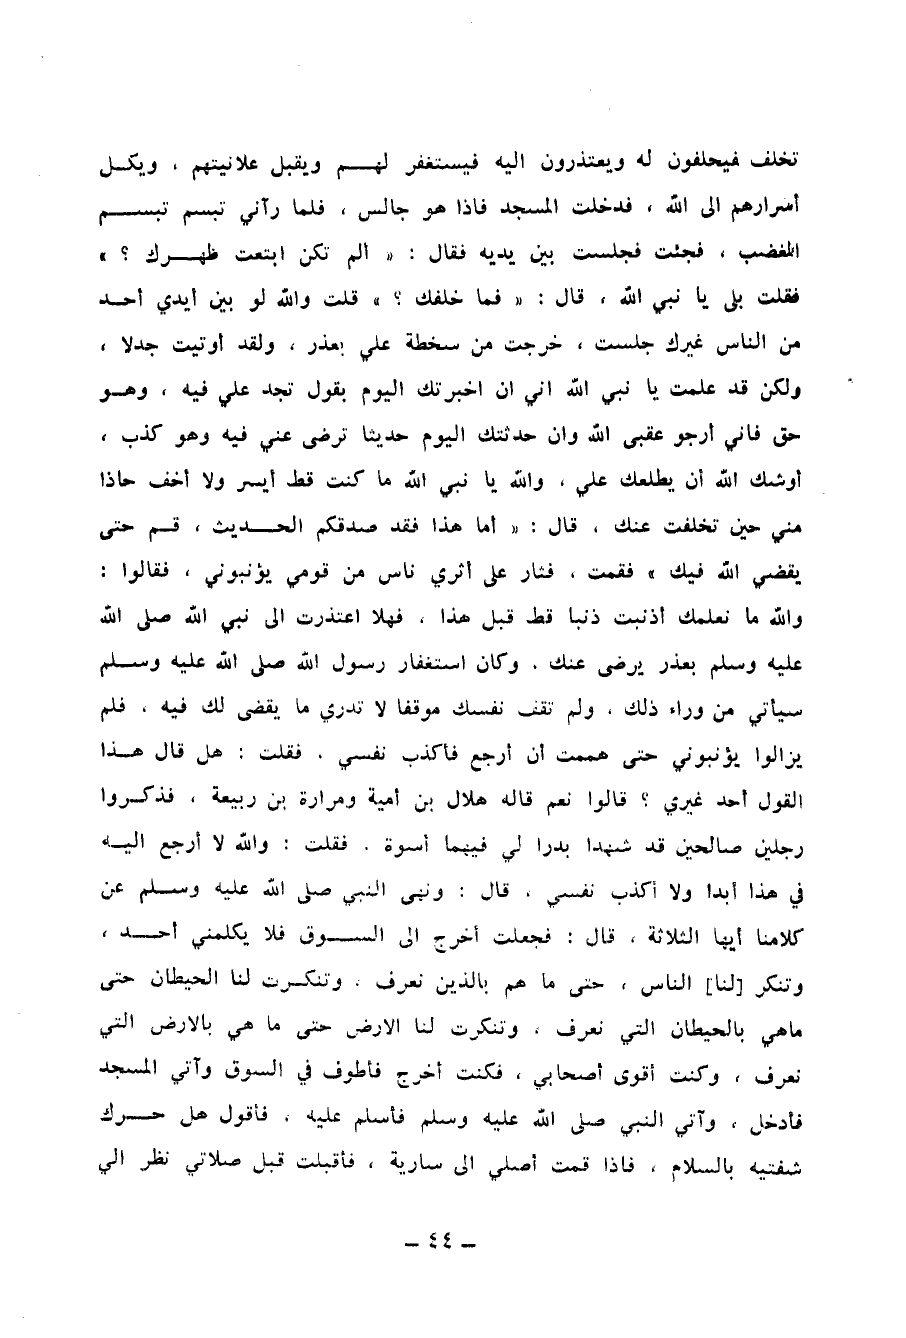 تخلف فيحلفون له ويعتذرون اليه فيستغفر لهم ويقبل علانيتهم ، ويكل
أسرارهم الى الله ، فدخلت المسجد فاذا هو جالس ، فلما رآني تبسم تبسم
المغضب ، فجئت فجلست بين يديه فقال : « الم تكن ابتعت ظهرك ؟ »
فقلت بلى يا نبي الله ، قال : « فما خلفك ؟ » قلت والله لو بين أيدي أحد
من الناس غيرك جلست ، خرجت من سخطة علي بعذر ، ولقد أوتيت جدلا ،
ولكن قد علمت يا نبي الله اني ان اخبرتك اليوم بقول تجد علي فيه ، وهو
حق فاني أرجو عقبى الله وان حدثتك اليوم حديثا ترضى عني فيه وهو كذب ،
أوشك الله أن يطلعك علي ، والله يا نبي الله ما كنت قط أيسر ولا أخف حاذا
مني حين تخلفت عنك ، قال : « أما هذا فقد صدقكم الحديث ، قم حتى
يقضي الله فيك » فقمت ، فثار على أثري ناس من قومي يؤنبوني ، فقالوا :
والله ما نعلمك أذنبت ذنبا قط قبل هذا ، فهلا اعتذرت الى نبي الله صلى الله
عليه وسلم بعذر يرضى عنك ، وكان استغفار رسول الله صلى الله عليه وسلم
سيأتي من وراء ذلك ، ولم تقف نفسك موقفا لا تدري ما يقضى لك فيه ، فلم
يزالوا يؤنبوني حتى هممت أن أرجع فأكذب نفسي ، فقلت : هل قال هذا
القول أحد غيري ؟ قالوا نعم قاله هلال بن أمية ومرارة بن ربيعة ، فذكروا
رجلين صالحين قد شهدا بدرا لي فيهما أسوة ، فقلت : والله لا أرجع اليه
في هذا أبدا ولا أكذب نفسي ، قال : ونهى النبي صلى الله عليه وسلم عن
كلامنا أيها الثلاثة ، قال : فجعلت أخرج الى السوق فلا يكلمني أحد ،
وتنكر [لنا] الناس ، حتى ما هم بالذين نعرف ، وتنكرت لنا الحيطان حتى
ماهي بالحيطان التي نعرف ، وتنكرت لنا الارض حتى ما هي بالارض التي
نعرف ، وكنت أقوى أصحابي ، فكنت أخرج فأطوف في السوق وآتي المسجد
فأدخل ، وآتي النبي صلى الله عليه وسلم فأسلم عليه ، فأقول هل حرك
شفتيه بالسلام ، فاذا قمت أصلي الى سارية ، فأقبلت قبل صلاتي نظر الي
– ٤٤ –